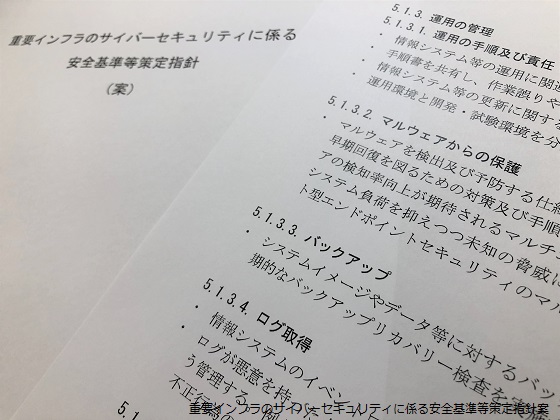 重要インフラのサイバーセキュリティに係る
安全基準等策定指針
(案)
5.1.3. 運用の管理
5.1.3.1. 運用の手順及び責任
・ 情報システム等の運用に関連
手順書を共有し、作業誤りや
・ 情報システム等の更新に関する
・ 運用環境と開発・試験環境を分
5.1.3.2. マルウェアからの保護
・ マルウェアを検出及び予防する仕組
早期回復を図るための対策及び手順
アの検知率向上が期待されるマルチ
システム負荷を抑えつつ未知の脅威に
ト型エンドポイントセキュリティのマル
5.1.3.3. バックアップ
・ システムイメージやデータ等に対するバッ
期的なバックアップリカバリー検査を実施
5.1.3.4. ログ取得
・ 情報システムのイベン
・ ログが悪意を持った
う管理する。例
不正行為の
5.1
重要インフラのサイバーセキュリティに係る安全基準等策定指針案